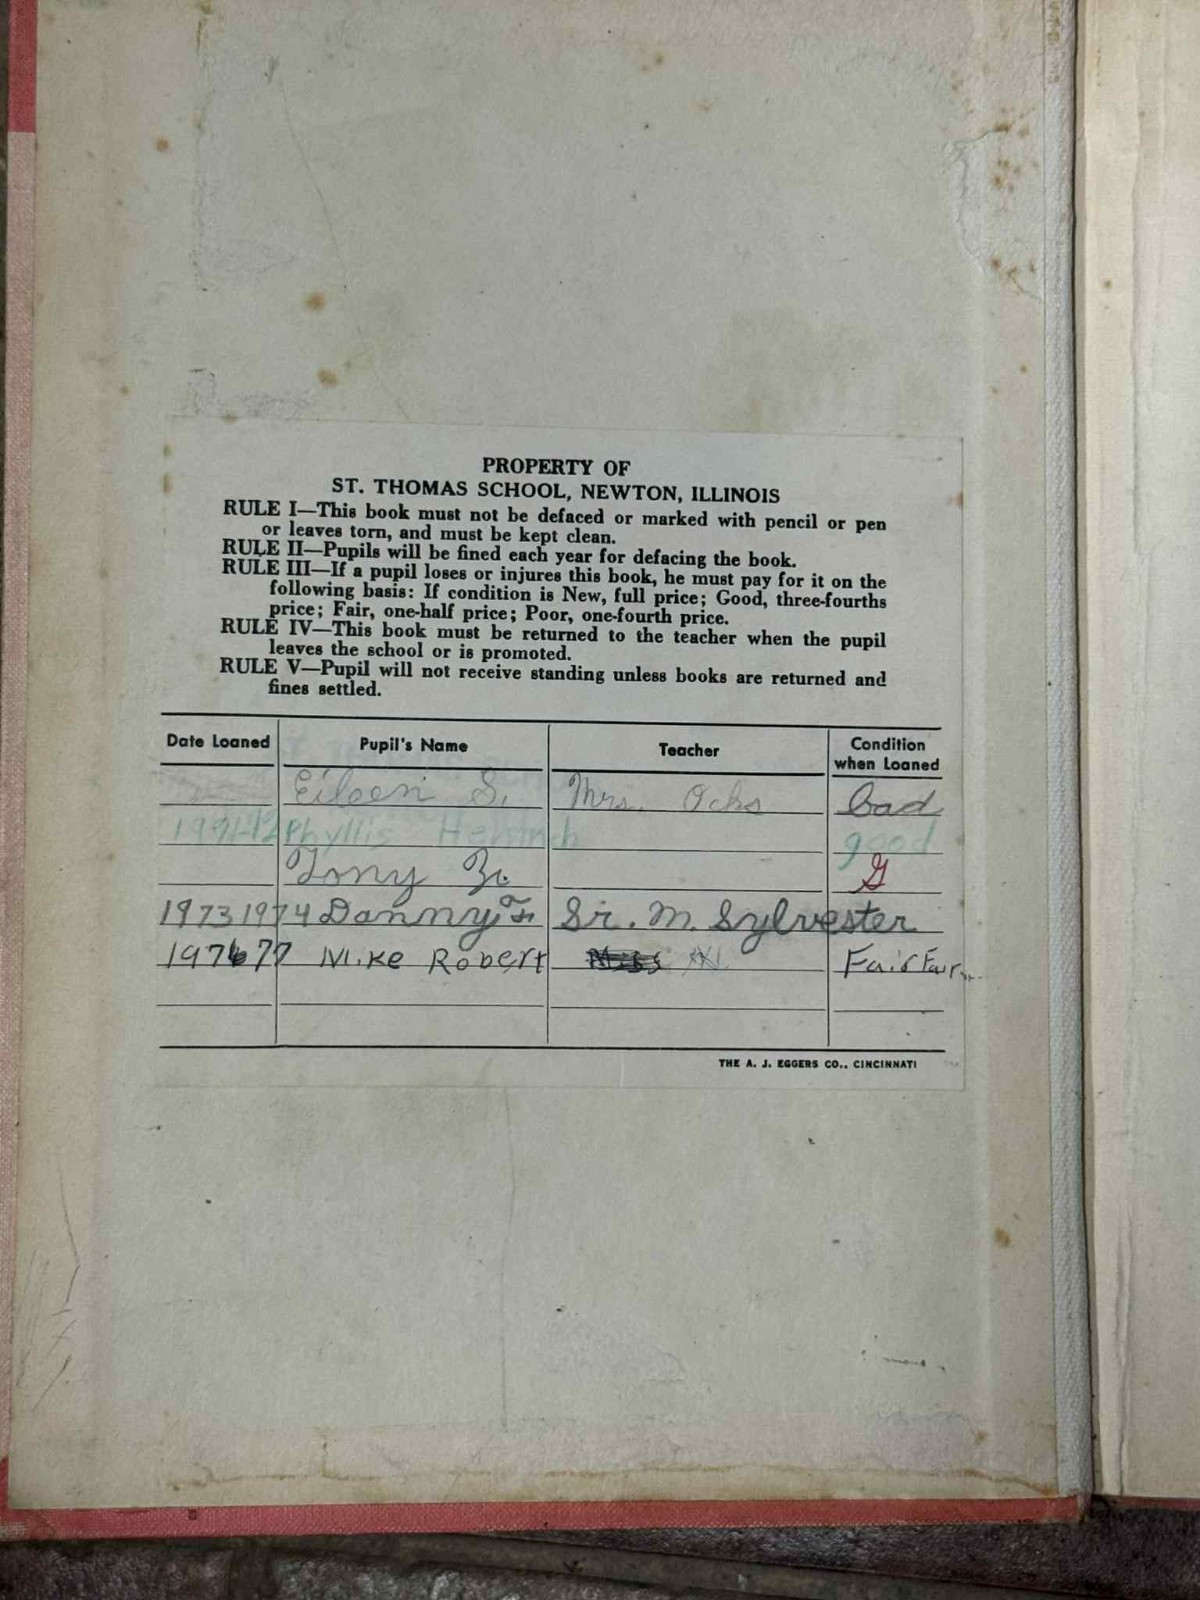 PROPERTY OF
ST. THOMAS SCHOOL, NEWTON, ILLINOIS
RULE I—This book must not be defaced or marked with pencil or pen
or leaves torn, and must be kept clean.
RULE II—Pupils will be fined each year for defacing the book.
RULE III—If a pupil loses or injures this book, he must pay for it on the
following basis: If condition is New, full price; Good, three-fourths
price; Fair, one-half price; Poor, one-fourth price.
RULE IV—This book must be returned to the teacher when the pupil
leaves the school or is promoted.
RULE V—Pupil will not receive standing unless books are returned and
fines settled.
Date Loaned Pupil's Name Teacher Condition when Loaned
Eileen S. Mrs. Ochs bad
Phyllis good
Tony G
1973 1974 Danny F. Sr. M. Sylvester
197677 Mike Robert Fair Fair
THE A. J. EGGERS CO., CINCINNATI